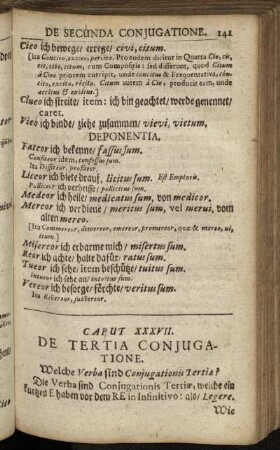 DE SECUNDA CONJUGATIONE. 141
Cieo ich bewege/ errege/ civi, citum.
[Ita Concieo, excieo, percieo. Pro eodem dicitur in Quarta Cio, civi,
citum, cum Compositis: sed differunt, quod Citum
à Cieo priorem corripit, unde concitus & Frequentativa, con-
cito, excito, recito. Citum autem à Cio, producit eam, unde
accitus & excitus.]
Clueo ich streite/ item: ich bin geachtet/ werde genennet/
caret.
Vieo ich binde/ ziehe zusammen/ vievi, vietum.
DEPONENTIA.
Fateor ich bekenne/ fassus sum.
Confiteor idem, confessus sum.
Ita Diffiteor, profiteor.
Liceor ich biete drauf, licitus sum. Est Emptoris.
Polliceor ich verheisse/ pollicitus sum.
Medeor ich heile/ medicatus sum, von medicor.
Mereor ich verdiene/ meritus sum, vel merui, vom
alten mereo.
[Ita Commereor, demereor, emereor, promereor, quæ & mereo, ui,
itum.]
Misereor ich erbarme mich/ misertus sum.
Reor ich achte/ halte dafür/ ratus sum.
Tueor ich sehe/ item beschütze/ tuitus sum.
intueor ich sehe an/ intuitus sum.
Vereor ich besorge/ förchte/ veritus sum.
Ita Revereor, subvereor.
CAPUT XXXVII.
DE TERTIA CONJUGA-
TIONE.
Welche Verba sind Conjugationis Tertiæ?
Die Verba sind Conjugationis Tertiæ, welche ein
kurtzes E haben vor dem RE in Infinitivo: als/ Legere.
Wie